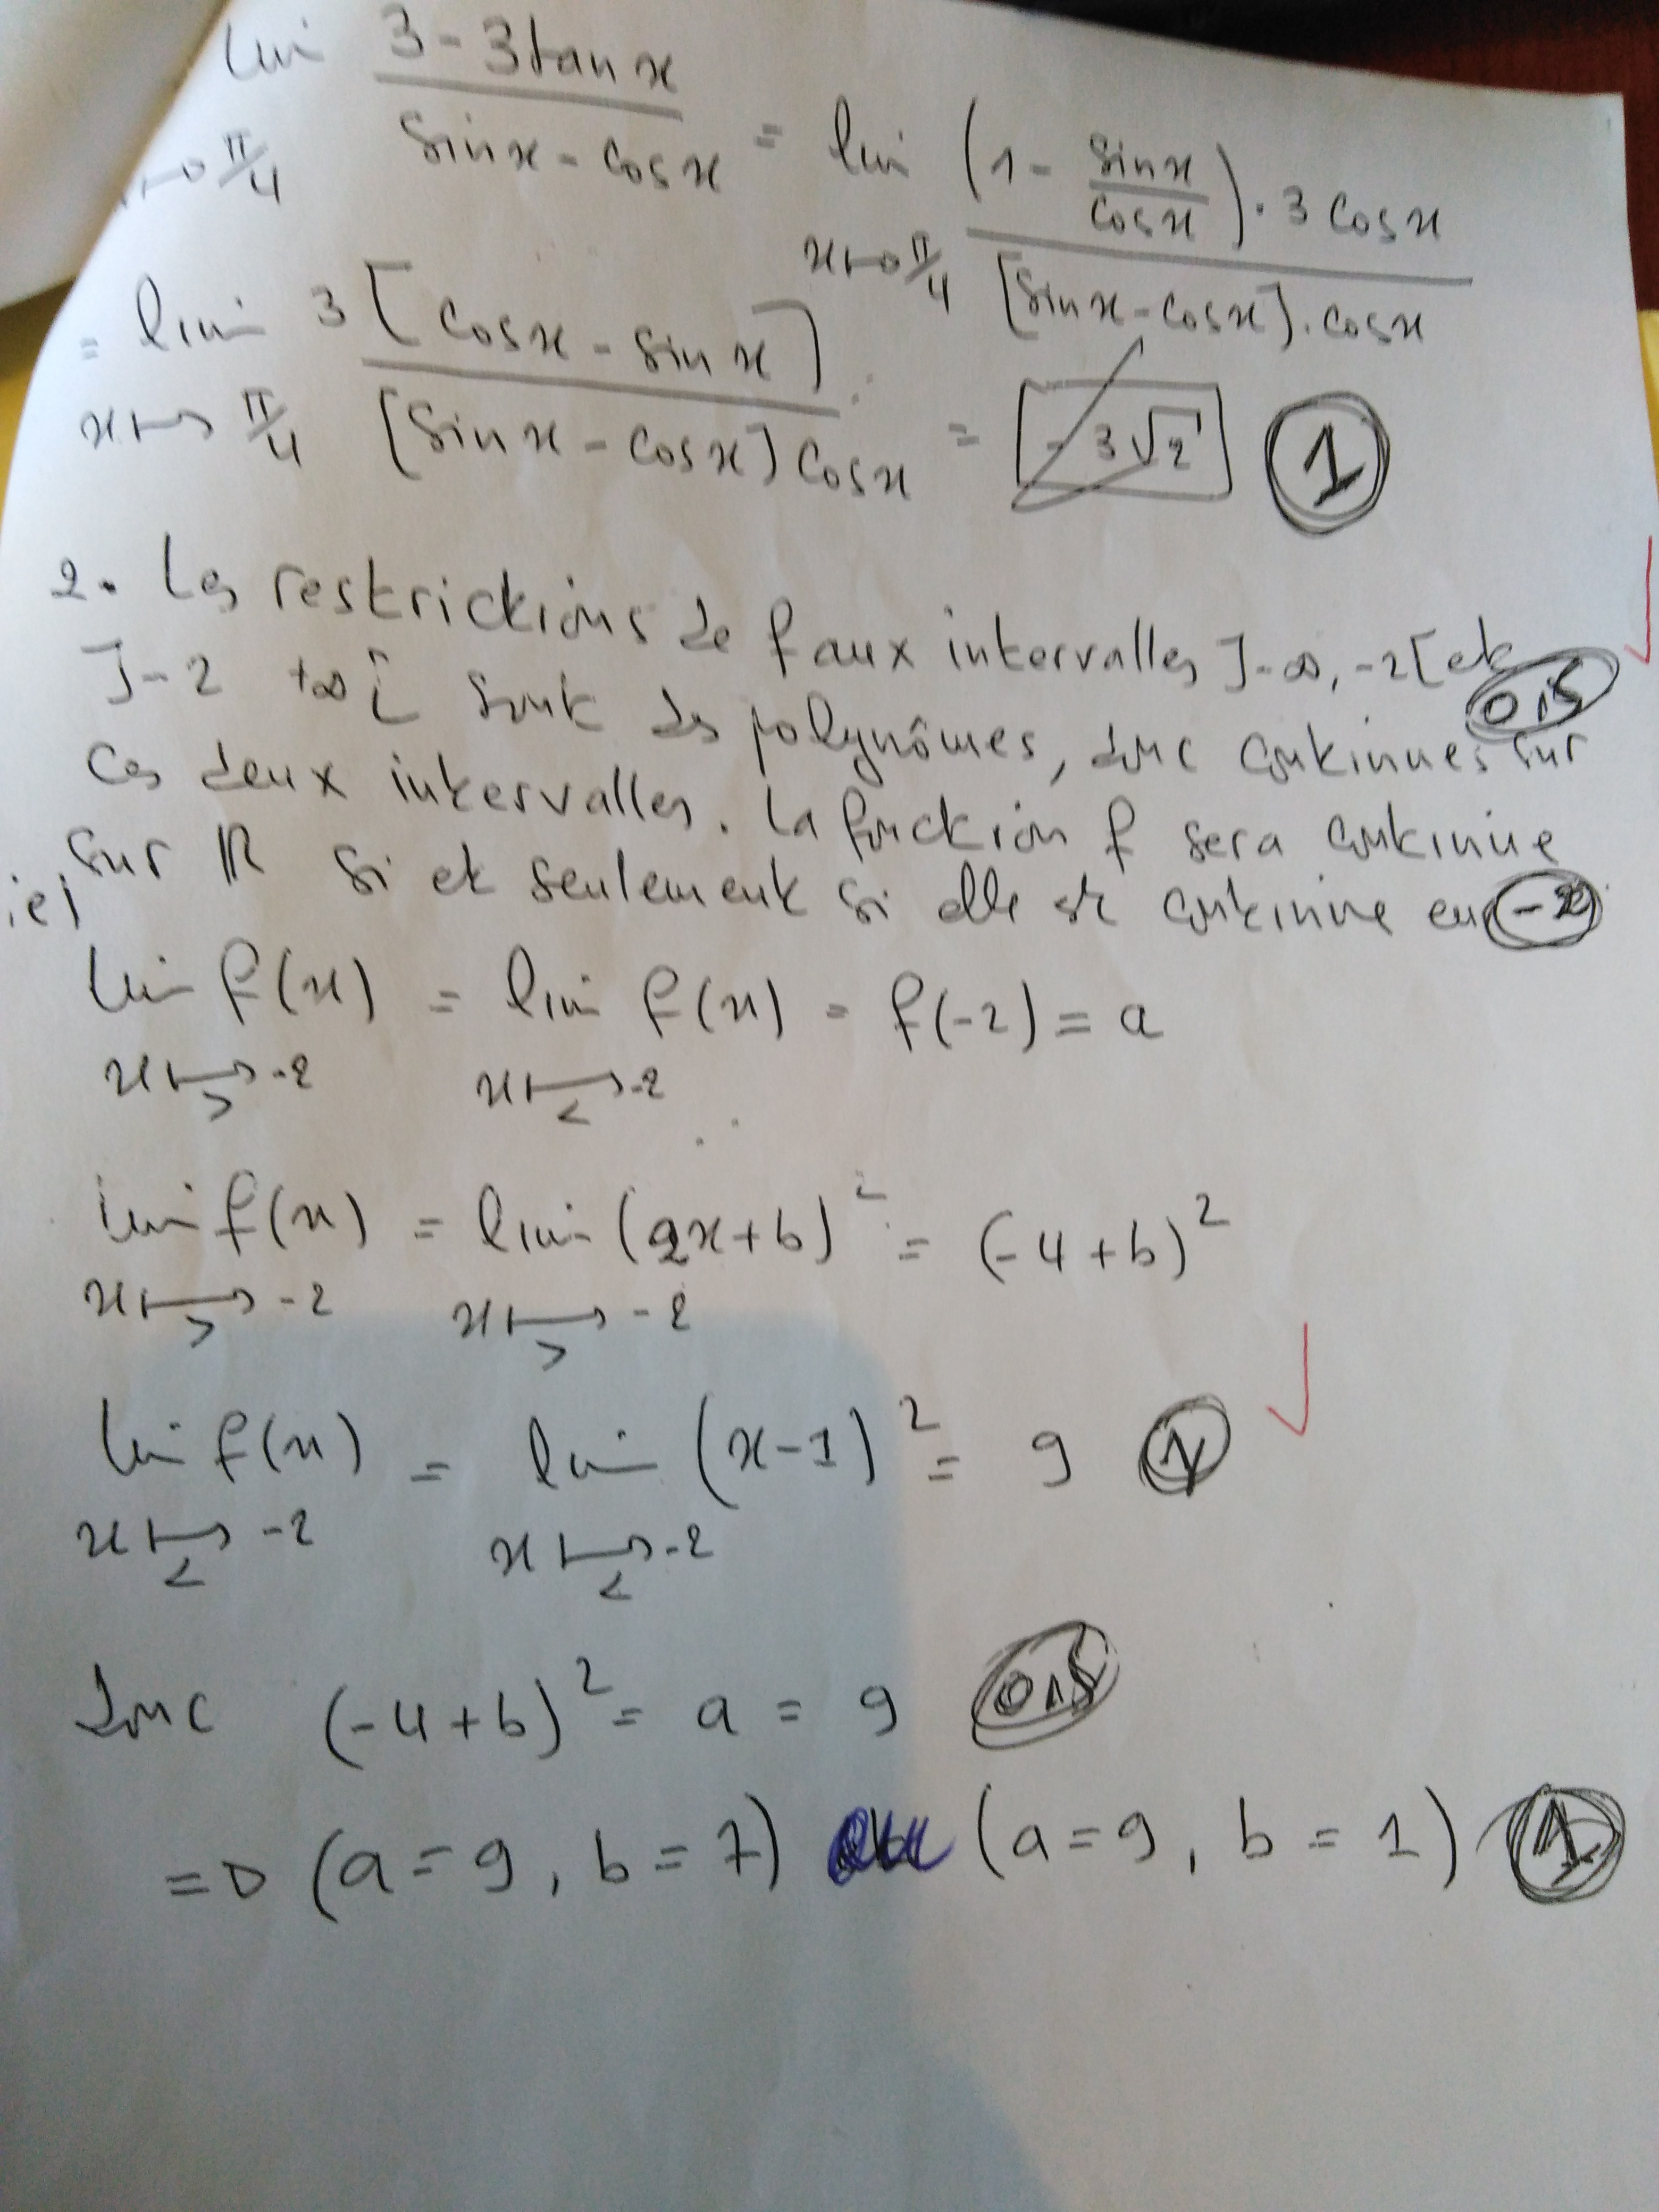 lim (3 - 3tan x)/(sin x - cos x) = lim ((1 - sin x/cos x) · 3 cos x)/([sin x - cos x] · cos x)
x ↦ π/4 x ↦ π/4
= lim 3[cos x - sin x]/([sin x - cos x] cos x) = -3√2 1
x ↦ π/4
2. Les restrictions de f aux intervalles ]-∞, -2[ et
]-2 +∞[ sont des polynômes, donc continues sur 0,5
ces deux intervalles. La fonction f sera continue
sur ℝ si et seulement si elle est continue en -2
ie)
lim f(x) = lim f(x) = f(-2) = a
x ↦ -2 x ↦ -2
> <
lim f(x) = lim (2x+b)² = (-4+b)²
x ↦ -2 x ↦ -2
> >
lim f(x) = lim (x-1)² = 9 1
x ↦ -2 x ↦ -2
< <
Donc (-4+b)² = a = 9 0,5
=> (a = 9, b = 7) (a = 9, b = 1) 1